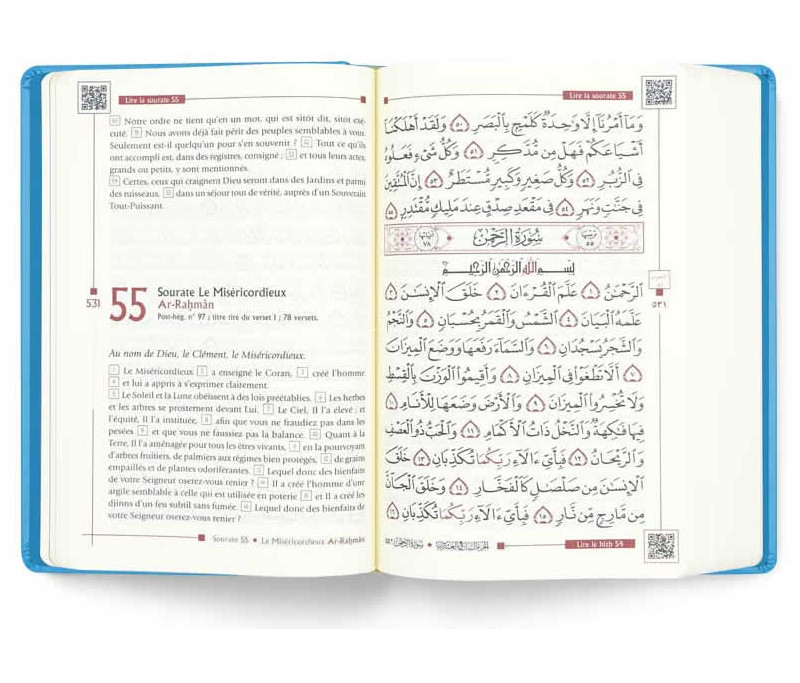 Lire la sourate 55
50 Notre ordre ne tient qu'en un mot, qui est sitôt dit, sitôt exé-
cuté. 51 Nous avons déjà fait périr des peuples semblables à vous.
Seulement est-il quelqu'un pour s'en souvenir ? 52 Tout ce qu'ils
ont accompli est, dans des registres, consigné ; 53 et tous leurs actes,
grands ou petits, y sont mentionnés.
54 Certes, ceux qui craignent Dieu seront dans des Jardins et parmi
des ruisseaux, 55 dans un séjour tout de vérité, auprès d'un Souverain
Tout-Puissant.
531
55
Sourate Le Miséricordieux
Ar-Raḥmân
Post-hég. n° 97 ; titre tiré du verset 1 ; 78 versets.
Au nom de Dieu, le Clément, le Miséricordieux.
1 Le Miséricordieux 2 a enseigné le Coran, 3 créé l'homme
4 et lui a appris à s'exprimer clairement.
5 Le Soleil et la Lune obéissent à des lois préétablies. 6 Les herbes
et les arbres se prosternent devant Lui. 7 Le Ciel, Il l'a élevé ; et
l'équité, Il l'a instituée, 8 afin que vous ne fraudiez pas dans les
pesées 9 et que vous ne faussiez pas la balance. 10 Quant à la
Terre, Il l'a aménagée pour tous les êtres vivants, 11 en la pourvoyant
d'arbres fruitiers, de palmiers aux régimes bien protégés, 12 de grains
empaillés et de plantes odoriférantes. 13 Lequel donc des bienfaits
de votre Seigneur oserez-vous renier ? 14 Il a créé l'homme d'une
argile semblable à celle qui est utilisée en poterie 15 et Il a créé les
djinns d'un feu subtil sans fumée. 16 Lequel donc des bienfaits de
votre Seigneur oserez-vous renier ?
Sourate 55 ◆ Le Miséricordieux Ar-Raḥmân
Lire la sourate 55
وَمَآ أَمْرُنَآ إِلَّا وَٰحِدَةٌ كَلَمْحٍۭ بِٱلْبَصَرِ ٥٠ وَلَقَدْ أَهْلَكْنَآ
أَشْيَاعَكُمْ فَهَلْ مِن مُّدَّكِرٍ ٥١ وَكُلُّ شَىْءٍ فَعَلُوهُ
فِى ٱلزُّبُرِ ٥٢ وَكُلُّ صَغِيرٍ وَكَبِيرٍ مُّسْتَطَرٌ ٥٣ إِنَّ ٱلْمُتَّقِينَ
فِى جَنَّٰتٍ وَنَهَرٍ ٥٤ فِى مَقْعَدِ صِدْقٍ عِندَ مَلِيكٍ مُّقْتَدِرٍۭ ٥٥
ترتيبها ٥٥ سُورَةُ الرَّحْمَٰن آياتها ٧٨
بِسْمِ ٱللَّهِ ٱلرَّحْمَٰنِ ٱلرَّحِيمِ
ٱلرَّحْمَٰنُ ١ عَلَّمَ ٱلْقُرْءَانَ ٢ خَلَقَ ٱلْإِنسَٰنَ ٣
عَلَّمَهُ ٱلْبَيَانَ ٤ ٱلشَّمْسُ وَٱلْقَمَرُ بِحُسْبَانٍ ٥ وَٱلنَّجْمُ
وَٱلشَّجَرُ يَسْجُدَانِ ٦ وَٱلسَّمَآءَ رَفَعَهَا وَوَضَعَ ٱلْمِيزَانَ
٧ أَلَّا تَطْغَوْا۟ فِى ٱلْمِيزَانِ ٨ وَأَقِيمُوا۟ ٱلْوَزْنَ بِٱلْقِسْطِ
وَلَا تُخْسِرُوا۟ ٱلْمِيزَانَ ٩ وَٱلْأَرْضَ وَضَعَهَا لِلْأَنَامِ ١٠
فِيهَا فَٰكِهَةٌ وَٱلنَّخْلُ ذَاتُ ٱلْأَكْمَامِ ١١ وَٱلْحَبُّ ذُو ٱلْعَصْفِ
وَٱلرَّيْحَانُ ١٢ فَبِأَىِّ ءَالَآءِ رَبِّكُمَا تُكَذِّبَانِ ١٣ خَلَقَ
ٱلْإِنسَٰنَ مِن صَلْصَٰلٍ كَٱلْفَخَّارِ ١٤ وَخَلَقَ ٱلْجَآنَّ
مِن مَّارِجٍ مِّن نَّارٍ ١٥ فَبِأَىِّ ءَالَآءِ رَبِّكُمَا تُكَذِّبَانِ ١٦
٥٣١
سورة الرحمن ٥٥
Lire le hizb 54